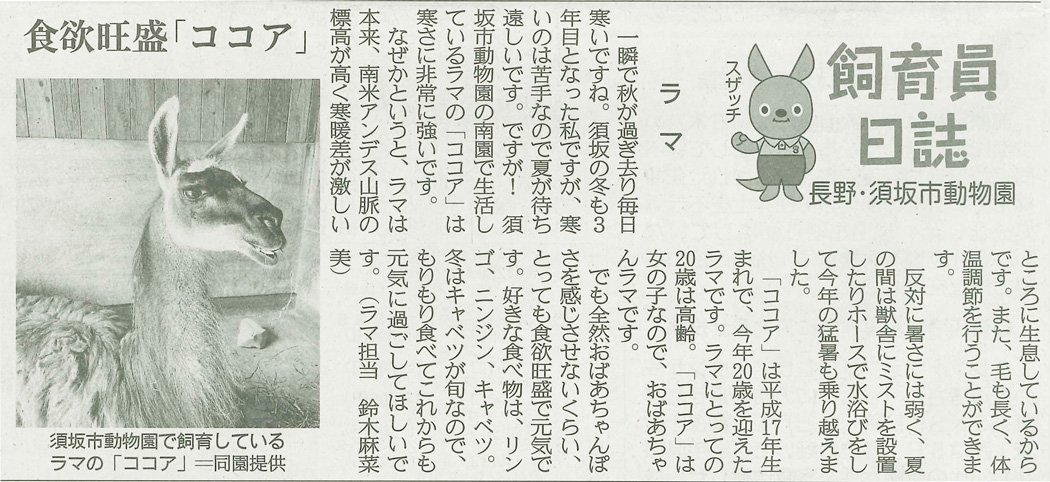 飼育員
日誌
長野・須坂市動物園
スザッチ
ラマ
食欲旺盛「ココア」
一瞬で秋が過ぎ去り毎日
寒いですね。須坂の冬も3
年目となった私ですが、寒
いのは苦手なので夏が待ち
遠しいです。ですが！　須
坂市動物園の南園で生活し
ているラマの「ココア」は
寒さに非常に強いです。
なぜかというと、ラマは
本来、南米アンデス山脈の
標高が高く寒暖差が激しい
ところに生息しているから
です。また、毛も長く、体
温調節を行うことができま
す。
反対に暑さには弱く、夏
の間は獣舎にミストを設置
したりホースで水浴びをし
て今年の猛暑も乗り越えま
した。
「ココア」は平成17年生
まれで、今年20歳を迎えた
ラマです。ラマにとっての
20歳は高齢。「ココア」は
女の子なので、おばあちゃ
んラマです。
でも全然おばあちゃんぽ
さを感じさせないくらい、
とっても食欲旺盛で元気で
す。好きな食べ物は、リン
ゴ、ニンジン、キャベツ。
冬はキャベツが旬なので、
もりもり食べてこれからも
元気に過ごしてほしいで
す。　（ラマ担当　鈴木麻菜
美）
須坂市動物園で飼育している
ラマの「ココア」＝同園提供